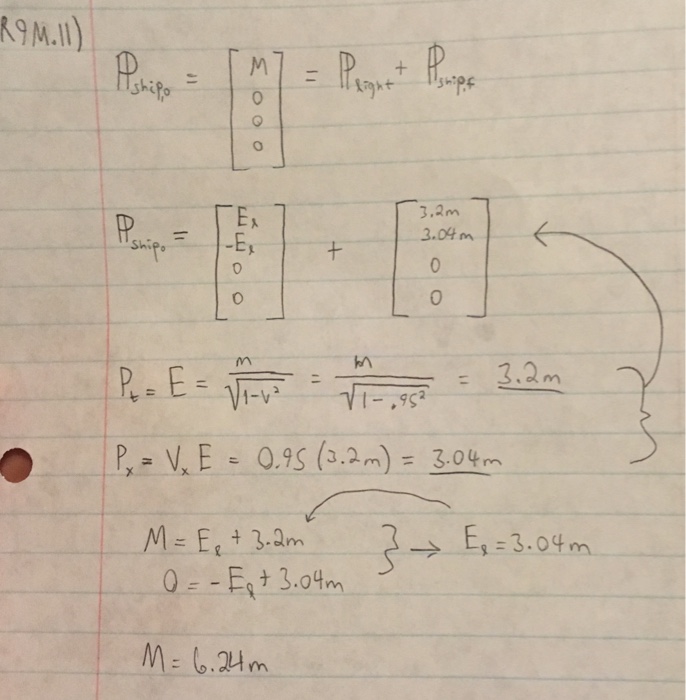 R9M.11)
ℙ_ship,0 = [M 0 0 0] = ℙ_light + ℙ_ship,f
ℙ_ship,0 = [E_ℓ -E_ℓ 0 0] + [3.2m 3.04m 0 0]
P_t = E = m/√(1-v²) = m/√(1-.95²) = 3.2m
P_x = V_x E = 0.95 (3.2m) = 3.04m
M = E_ℓ + 3.2m } → E_ℓ = 3.04m
0 = -E_ℓ + 3.04m
M = 6.24m